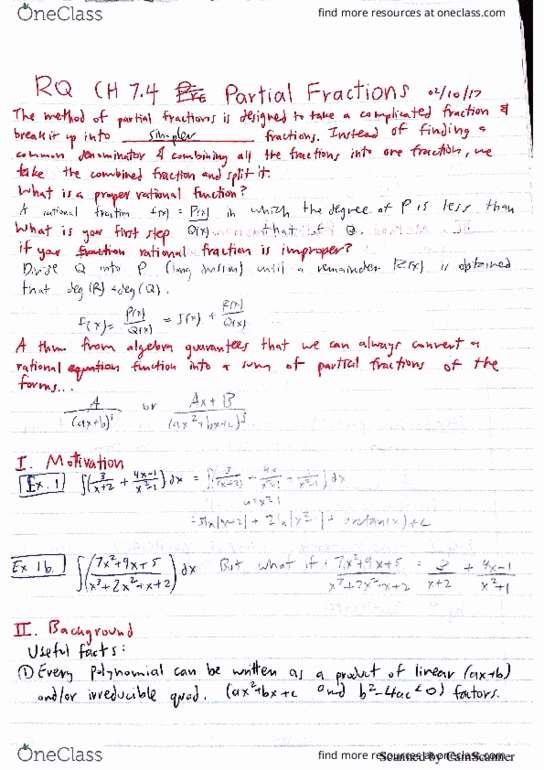 OneClass
find more resources at oneclass.com
RQ CH 7.4 Partial Fractions 02/10/17
The method of partial fractions is designed to take a complicated fraction &
break it up into simpler fractions. Instead of finding a
common denominator & combining all the fractions into one fraction, we
take the combined fraction and split it.
What is a proper rational function?
A rational fraction f(x) = P(x)/Q(x) in which the degree of P is less than
that of Q.
What is your first step
if your rational fraction is improper?
Divide Q into P (long division) until a remainder R(x) is obtained
that deg(R) < deg(Q).
f(x) = P(x)/Q(x) = S(x) + R(x)/Q(x)
A thm from algebra guarantees that we can always convert a
rational function into a sum of partial fractions of the
forms...
A/(ax+b)^i or Ax+B/(ax²+bx+c)^j
I. Motivation
Ex. 1 ∫(3/x+2 + 4x-1/x²+1)dx = ∫(3/(x+2) + 4x/x²+1 - 1/x²+1)dx
Ex 1b. ∫(7x²+9x+5/x³+2x²+x+2)dx But what if: 7x²+9x+5/x³+2x²+x+2 = 3/x+2 + 4x-1/x²+1
II. Background
Useful facts:
① Every polynomial can be written as a product of linear (ax+b)
and/or irreducible quad. (ax²+bx+c and b²-4ac<0) factors.
OneClass
find more resources at oneclass.com
Scanned by CamScanner